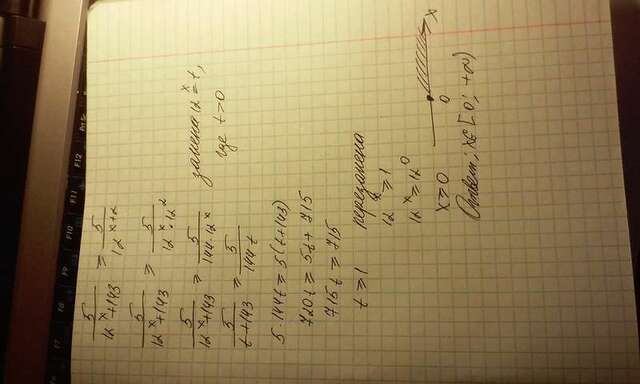 F7 F8 F9 F10 F11 F12
5/(12^x+143) ≥ 5/12^(x+2)
5/(12^x+143) ≥ 5/(12^x·12^2)
5/(12^x+143) ≥ 5/(144·12^x) замена 12^x=t,
5/(t+143) ≥ 5/(144t) где t>0
5·144t ≥ 5(t+143)
720t ≥ 5t+715
715t ≥ 715
t ≥ 1 перезамена
12^x ≥ 1
12^x ≥ 12^0
x ≥ 0 0 x
Ответ: x∈[0; +∞)